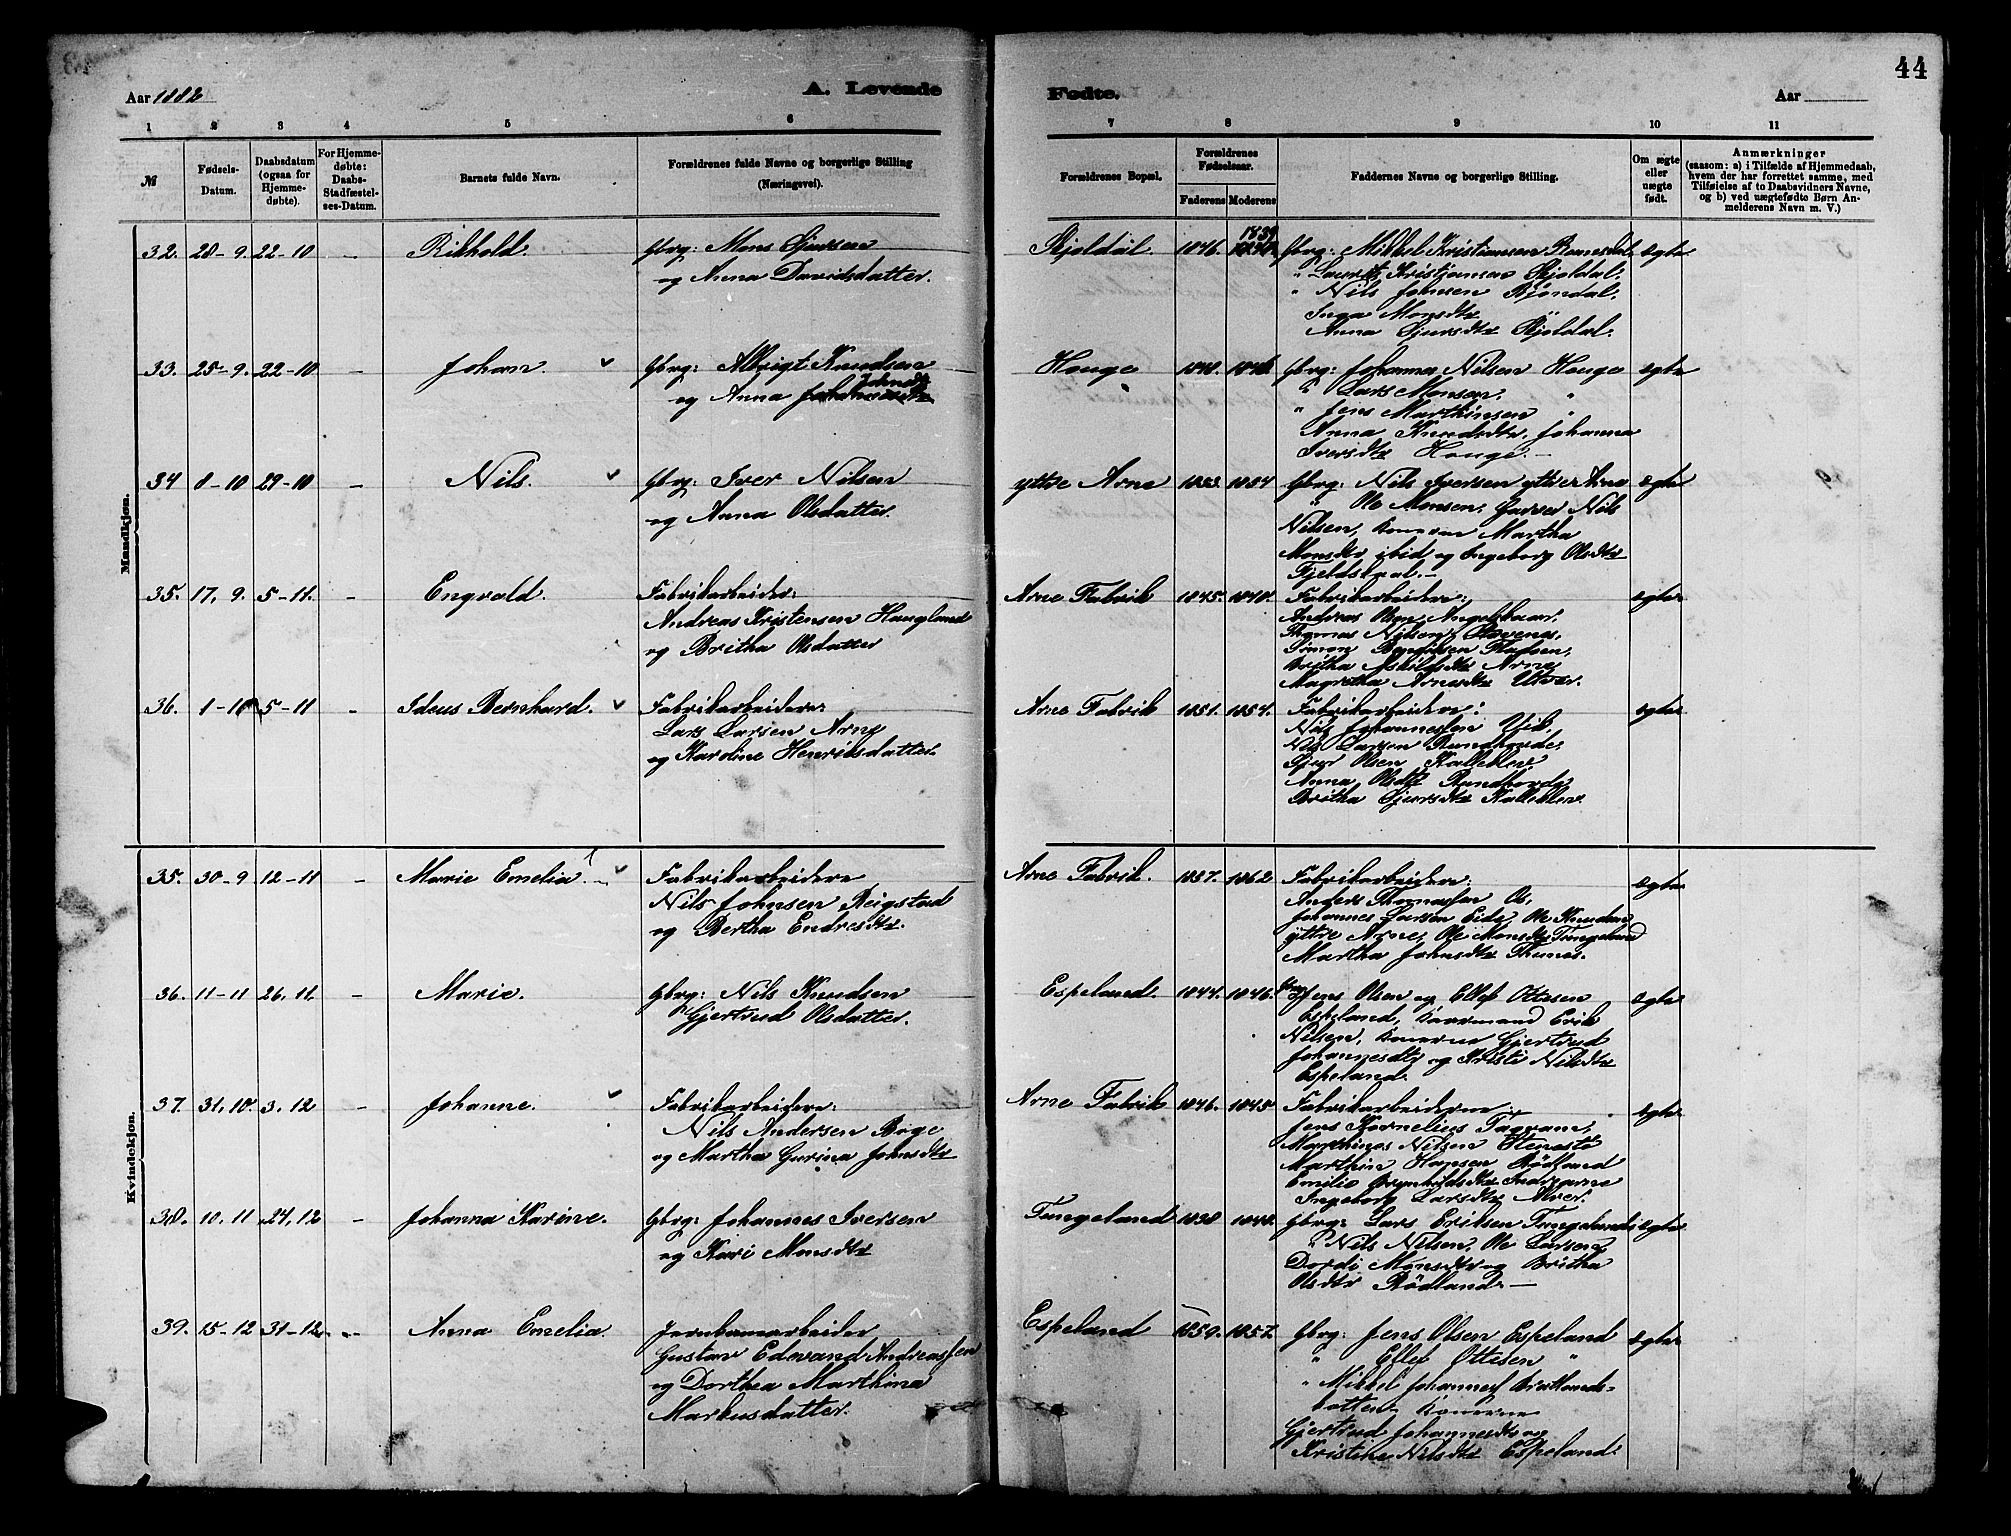 44
Aar 1882
A. Levende
Fødte.
Aar
1 2 3 4 5 6 7 8 9 10 11
№
Fødsels-
Datum.
Daabsdatum
(ogsaa for
Hjemme-
døbte).
For Hjemme-
døbte:
Daabs-
Stadfæstel-
ses-Datum.
Barnets fulde Navn.
Forældrenes fulde Navne og borgerlige Stilling
(Næringsvei).
Forældrenes Bopæl.
Forældrenes
Fødselsaar.
Faderens Moderens
Faddernes Navne og borgerlige Stilling.
Om ægte
eller
uægte
født.
Anmærkninger
(saasom: a) i Tilfælde af Hjemmedaab,
hvem der har forrettet samme, med
Tilføielse af to Daabsvidners Navne,
og b) ved uægtefødte Børn An-
melderens Navn m. V.)
Mandkjøn.
32. 28-9. 22-10 - Rikhold.
Gbrg: Mons Sjursen
og Anna Davidsdatter.
Skjoldal 1846. 1839
Gbrg: Mikkel Kristiansen Romesdal, ægte
" Laurits Kristjansen Skjoldal.
" Nils Johnsen Bjöndal.
Inga Monsdtr
Anna Sjursdtr Skjoldal.
33. 25-9. 22-10 - Johan.
Gbrg: Albrigt Knudsen
og Anna
Houge 1848. 1846.
Gbrg: Johannes Nilsen Houge ægte
" Lars Monsen, "
" Jens Marthinsen "
Anna Knudsdtr, Johanna
Iversdtr Houge.-
34 8-10 29-10 - Nils.
Gbrg: Iver Nilsen
og Anna Olsdatter.
yttre Arne 1853. 1854
Gbrg: Nils Iversen yttre Arne ægte
" Ole Monsen, Gutter Nils
Nilsen, Konerne Martha
Monsdtr ibid og Ingeborg Olsdtr
Fjeldskaal.-
35. 17, 9. 5-11. - Engvald.
Fabrikarbeider:
Andreas Kristensen Haugland
og Britha Olsdatter
Arne Fabrik 1845. 1848.
Fabrikarbeidere: ægte
Andreas Olsen Angelskaar,
Thomas Nilsen Stavenes,
Simon Bendiksen
Britha Arne,
Magretha Arnesdtr Utvær.
36. 1-10 5-11 - Ideus Bernhard.
Fabrikarbeidere
Lars Larsen Arne
og Karoline Henriksdatter.
Arne Fabrik 1851. 1854.
Fabrikarbeidere: ægte
Nils Johannessen Vik,
Nils Larsen Rundhovde,
Sjur Olsen Kallekleiv
Anna Olsdtr Rundhovde
Britha Sjursdtr Kallekleiv.
Kvindekjøn.
35. 30-9 12-11 - Marie Emelia.
Fabrikarbeidere
Nils Johnsen Reigstad
og Bertha Endresdtr.
Arne Fabrik. 1857. 1862
Fabrikarbeidere: ægte
Anders Thomassen Os,
Johannes Larsen Eide, Ole Knudsen
yttre Arne, Ole Monsdtr Tungeland
Martha Johnsdtr Thunes.
36. 11-11 26, 11. - Marie.
Gbrg: Nils Knudsen
Gjertrud Olsdatter.
Espeland. 1844. 1846.
Gbrg Jens Olsen og Ellef Ottesen ægte
Espeland, Kaarmand Erik
Nilsen, Konerne Gjertrud
Johannesdtr og Kristi Nilsdtr
Espeland.
37. 31, 10. 3, 12 - Johanne.
Fabrikarbeidere:
Nils Andersen Boge
og Martha Gurina Johnsdtr
Arne Fabrik 1846. 1845
Fabrikarbeiderne ægte
Jens Kornelius
Marthinus Nilsen
Marthin Hansen Rödland
Emilie Indrearne
Ingeborg Larsdtr Alver.
38. 10, 11 24, 12 - Johanna Karine.
Gbrg: Johannes Iversen
og Kari Monsdtr
Tungeland 1838 1848.
Gbrg: Lars Eriksen Tungeland, ægte
" Nils Nilsen, Ole Larsen,
Dordi Monsdtr og Britha
Olsdtr Rödland.-
39. 15-12 31-12 - Anna Emelia.
Jernbanearbeider
Gustav Edevand Andreassen
og Dorthea Marthina
Markusdatter.
Espeland 1859. 1857.
Gbrg: Jens Olsen Espeland ægte
" Ellef Ottesen "
" Mikkel Johannes Bratlands-
botten Konerne
Gjertrud Johannesdtr og
Kristine Nilsdtr Espeland.